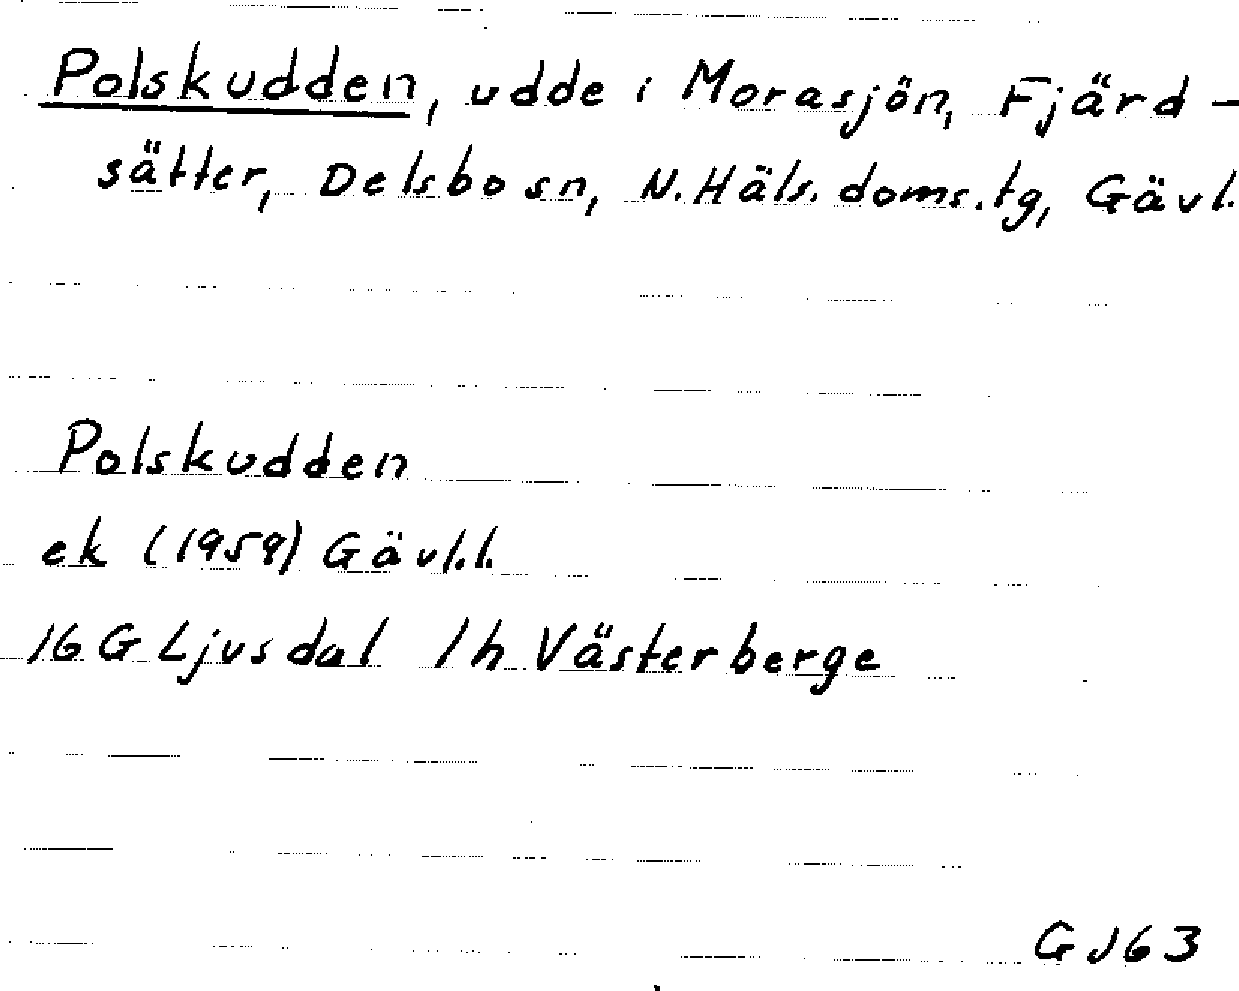 Polskudden, udde i Morasjön, Fjärd-
sätter, Delsbo sn, N. Häls. doms.tg, Gävl.
Polskudden
ek (1959) Gävl.l.
16 G Ljusdal 1h Västerberge
GJ63